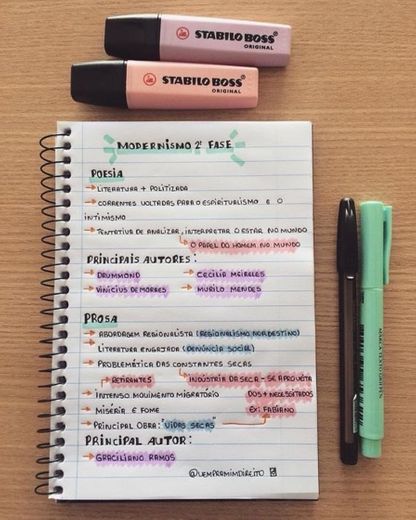 STABILO BOSS
ORIGINAL
STABILO BOSS
ORIGINAL
MODERNISMO 2ª FASE
POESIA
→ LITERATURA + POLITIZADA
→ CORRENTES VOLTADAS PARA O ESPIRITUALISMO E O
INTIMISMO
→ TENTATIVA DE ANALIZAR, INTERPRETAR O ESTAR NO MUNDO
↳ O PAPEL DO HOMEM NO MUNDO
PRINCIPAIS AUTORES:
→ DRUMMOND → CECILIA MEIRELES
→ VINICIUS DE MORAES → MURILO MENDES
PROSA
→ ABORDAGEM REGIONALISTA (REGIONALISMO NORDESTINO)
→ LITERATURA ENGAJADA (DENÚNCIA SOCIAL)
→ PROBLEMÁTICA DAS CONSTANTES SECAS
↳ RETIRANTES ↳ INDÚSTRIA DA SECA - SE APROVEITA
→ INTENSO MOVIMENTO MIGRATÓRIO DOS + NECESSITADOS
→ MISÉRIA E FOME EX: FABIANO
→ PRINCIPAL OBRA: "VIDAS SECAS"
PRINCIPAL AUTOR:
→ GRACILIANO RAMOS
@VEMPRAMIMDIREITO